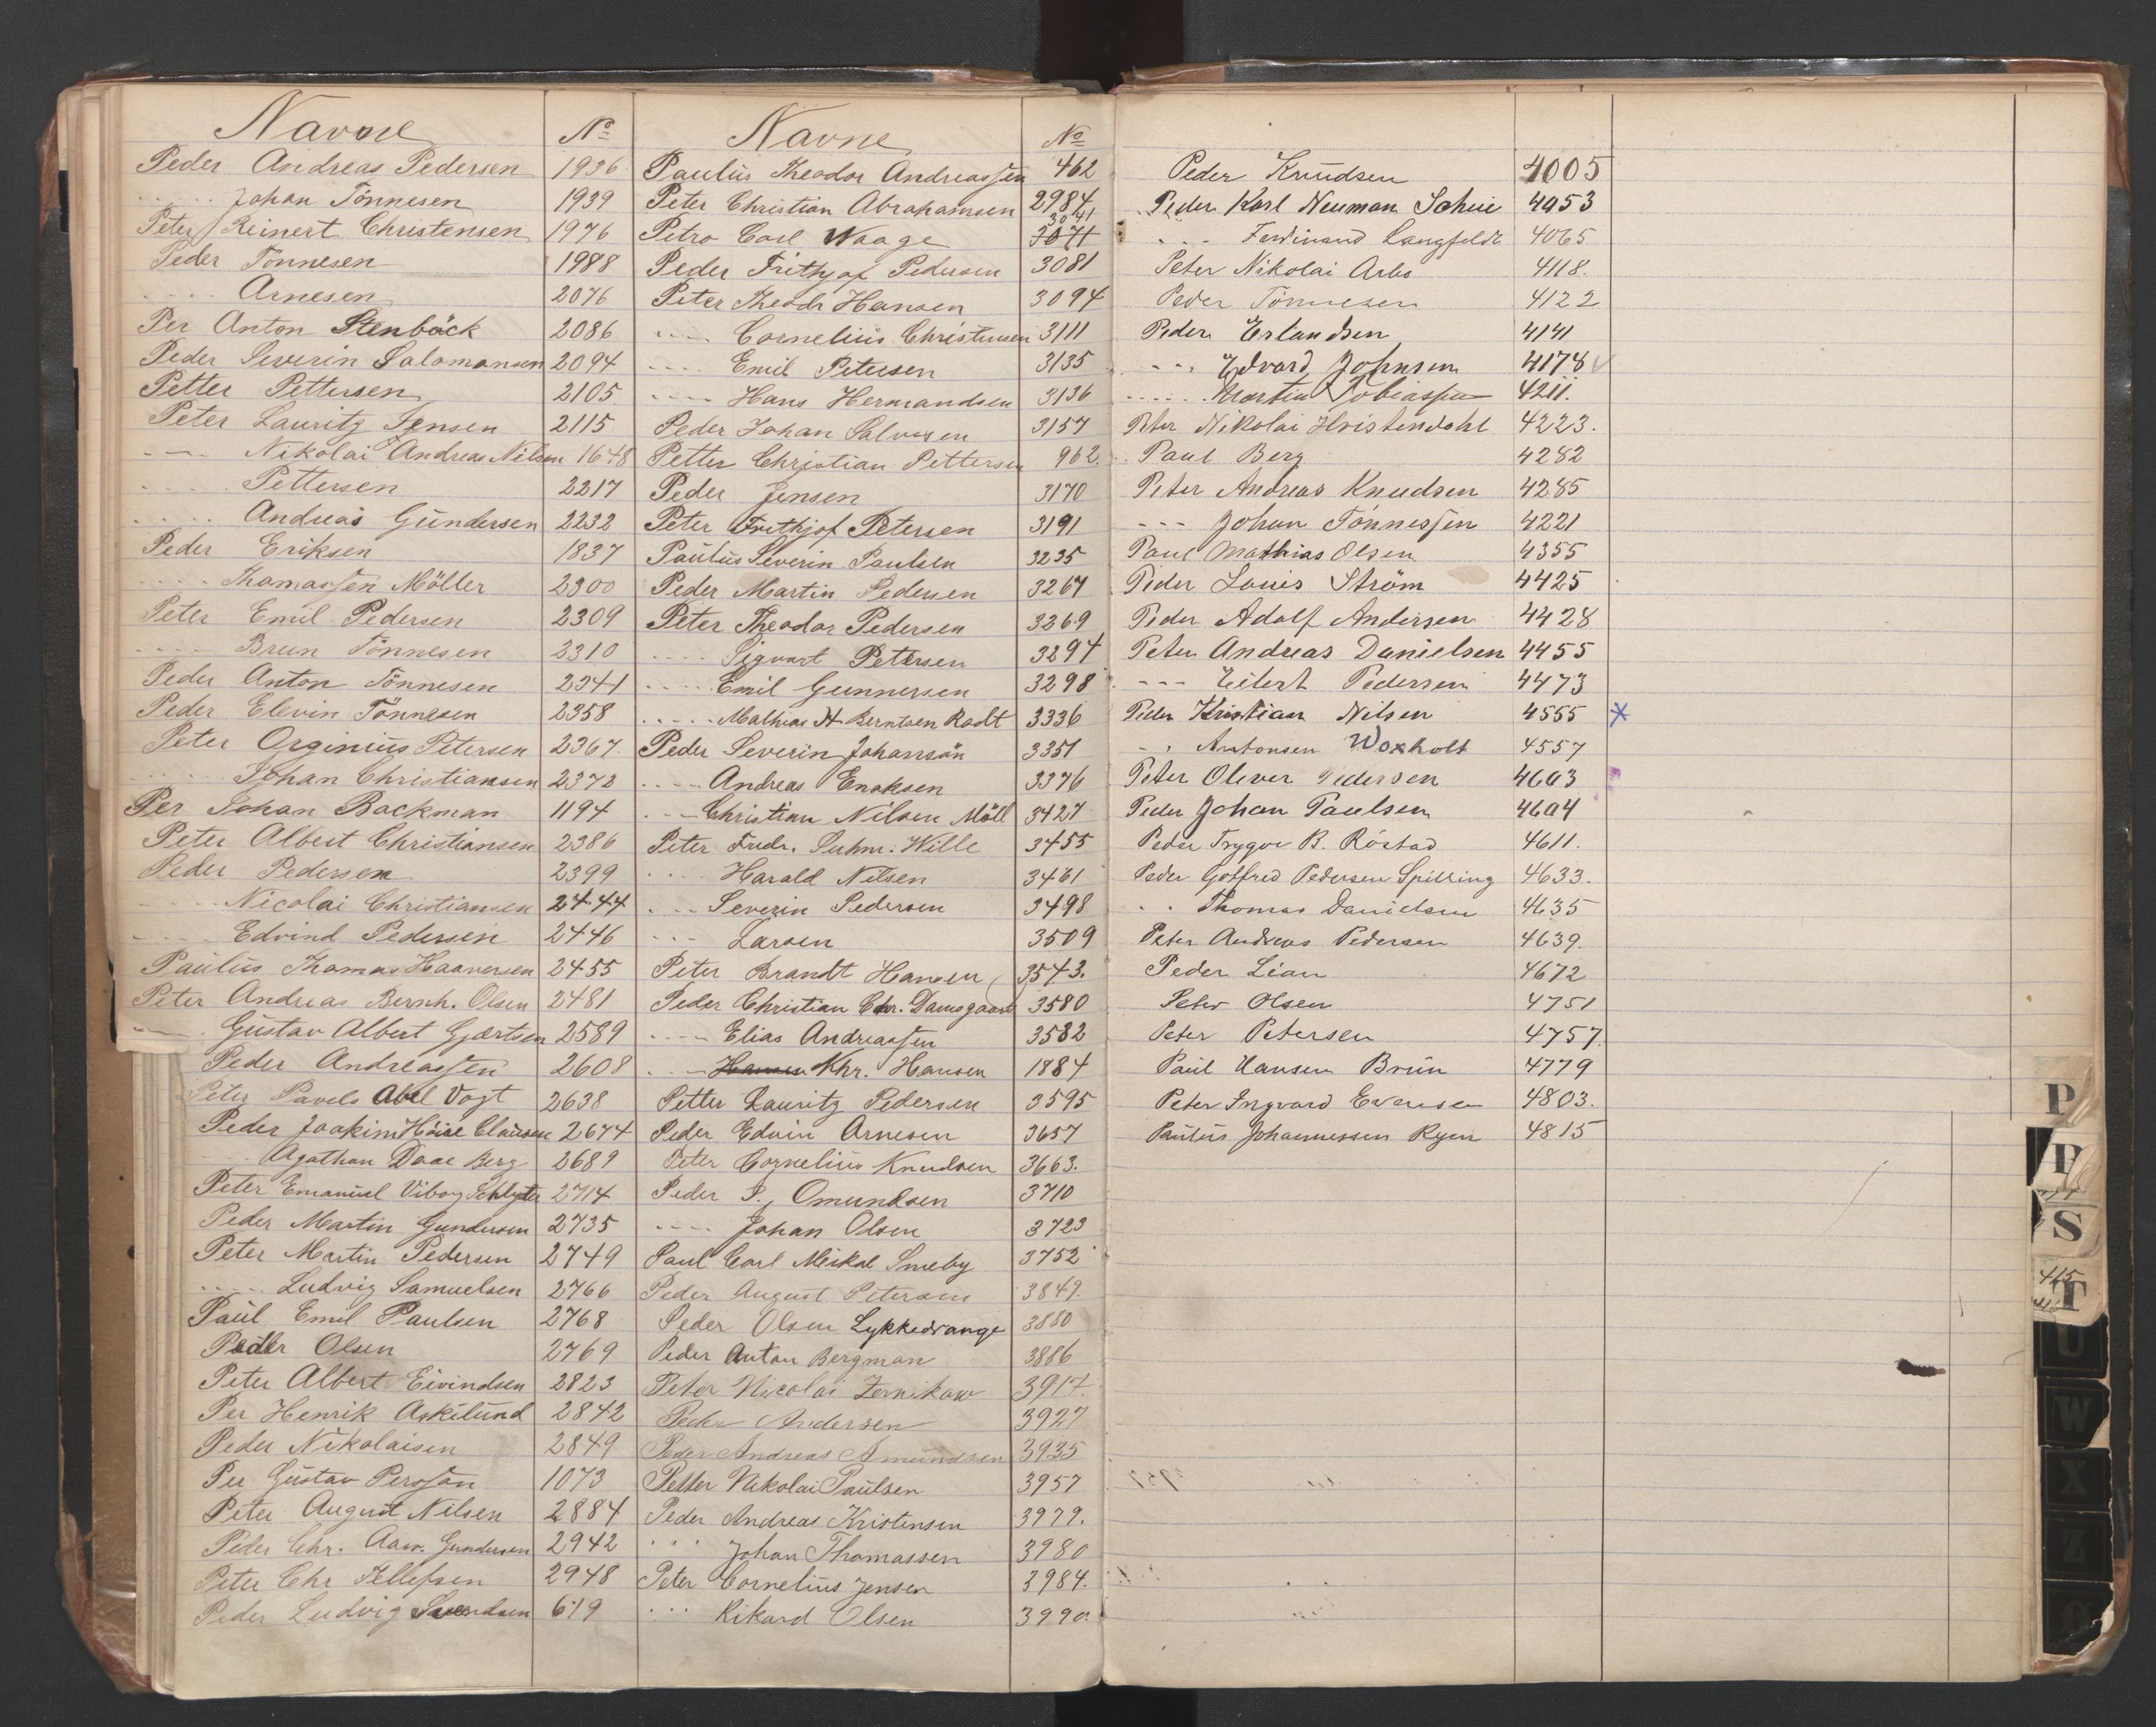 Navne No
Peder Andreas Pedersen 1936
..... Johan Tönnesen 1939
Peter Reinert Christensen 1976
Peder Tönnesen 1988
.... Arnesen 2076
Per Anton Stenböck 2086
Peder Severin Salomonsen 2094
Petter Pettersen 2105
Peter Lauritz Jensen 2115
---- Nikolai Andreas Nilsen 1648
..... Pettersen 2217
..... Andreas Gundersen 2232
Peder Eriksen 1837
.... Thomassen Möller 2300
Peter Emil Pedersen 2309
.... Brun Tönnesen 2310
Peder Anton Tönnesen 2341
Peder Elevin Tönnesen 2358
Peter Orginius Petersen 2367
..... Johan Christiansen 2372
Per Johan Backman 1194
Peter Albert Christiansen 2386
Peder Pedersen 2399
.... Nicolai Christiansen 2444
.... Edvind Pedersen 2446
Paulus Thomas Haaversen 2455
Peter Andreas Bernh. Olsen 2481
---- Gustav Albert Gjertsen 2589
Peder Andreassen 2608
Peter Pavels Abel Vogt 2638
Peder Joakim Höise Clausen 2674
.... Agathon Daae Berg 2689
Peter Emanuel Viborg Schlyter 2714
Peder Martin Gundersen 2735
Peter Martin Pedersen 2749
..... Ludvig Samuelsen 2766
Paul Emil Paulsen 2768
Peder Olsen 2769
Peter Albert Eivindsen 2823
Per Henrik Askelund 2842
Peder Nikolaisen 2849
Per Gustav Persson 1073
Peter August Nilsen 2884
Peder Chr. Aaw. Gundersen 2942
Peter Chr Tellefsen 2948
Peder Ludvig Svendsen 619
Navne No
Paulus Theodor Andreassen 462
Peter Christian Abrahamsen 2984
Petro Carl Waage 3041 3071
Peder Frithjof Pedersen 3081
Peter Theodr Hansen 3094
.... Cornelius Christensen 3111
.... Emil Petersen 3135
.... Hans Hermandsen 3136
Peder Johan Salvesen 3157
Petter Christian Pettersen 962.
Peder Jensen 3170
Peter Frithjof Petersen 3191
Paulus Severin Paulsen 3235
Peder Martin Pedersen 3267
Peter Theodor Pedersen 3269
.... Sigvart Petersen 3294
.... Emil Gunnersen 3298
..... Mathias N. Berntsen Rodt 3336
Peder Severin Johansön 3351
.... Andreas Enoksen 3376
.... Christian Nilsen Möll 3427
Peter Fredr. Suhm. Wille 3455
.... Harald Nilsen 3461
... Severin Pedersen 3498
... Larsen 3509
Peter Brandt Hansen 3543.
Peder Christian Chr. Damsgaard 3580
.... Elias Andreassen 3582
.... Hansen Khr. Hansen 1884
Petter Lauritz Pedersen 3595
Peder Edvin Arnesen 3657
Peter Cornelius Knudsen 3663.
Peder S. Omundsen 3710
.... Johan Olsen 3723
Paul Carl Meikal Smeby 3752
Peder August Petersen 3849.
Peder Olsen Lykkedrange 3880
Peder Anton Bergman 3886
Peter Nicolai Zernikow 3917.
Peder Andersen 3927
Peder Andreas Amundsen 3935
Petter Nikolai Paulsen 3957
Peder Andreas Kristensen 3979.
... Johan Thomassen 3980
Peter Cornelius Jensen 3984.
... Rikard Olsen 3990.
Peder Knudsen 4005
Peder Karl Neuman Scheie 4053
... Ferdinand Langfeldt 4065
Peter Nikolai Arbo 4118.
Peder Tönnesen 4122
Peder Erlandsen 4141
... Edvard Johnsen 4178
..... Martin Tobiassen 4211.
Peter Nikolai Hvistendahl 4223.
Paul Berg 4282
Peter Andreas Knudsen 4285
--- Johan Tönnessen 4221
Paul Mathias Olsen 4355
Peder Louis Ström 4425
Peder Adolf Andersen 4428
Peter Andreas Danielsen 4455
--- Eilert Pedersen 4473
Peder Kristian Nilsen 4555 *
.. Antonsen Woxholt 4557
Peter Oliver Pedersen 4603
Peder Johan Paulsen 4604
Peder Trygve B. Röstad 4611.
Peder Gotfred Pedersen Spilling 4633.
.. Thomas Danielsen 4635
Peter Andreas Pedersen 4639.
Peder Lian 4672
Peter Olsen 4751
Peter Petersen 4757.
Paul Hansen Brun 4779
Peter Ingvard Evensen 4803.
Paulus Johannessen Ryen 4815
P
P
S
T
U
W
X
Z